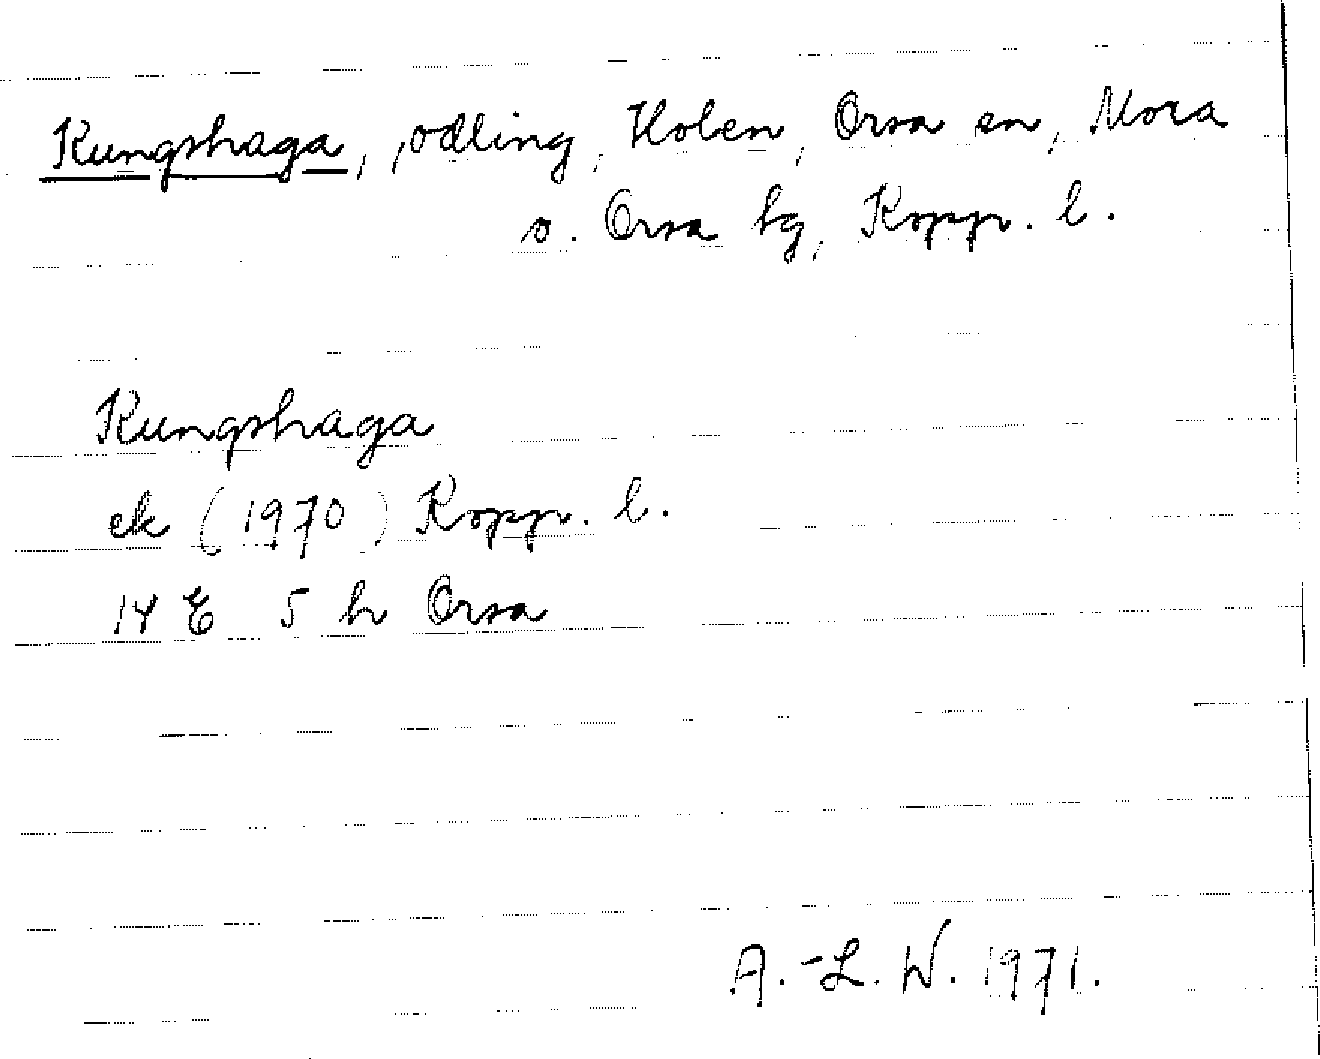 Kungshaga, odling, Holen, Orsa sn, Mora
o. Orsa hg, Kopp. l.
Kungshaga
ek (1970) Kopp. l.
14 E 5 h Orsa
A.-L. W. 1971.